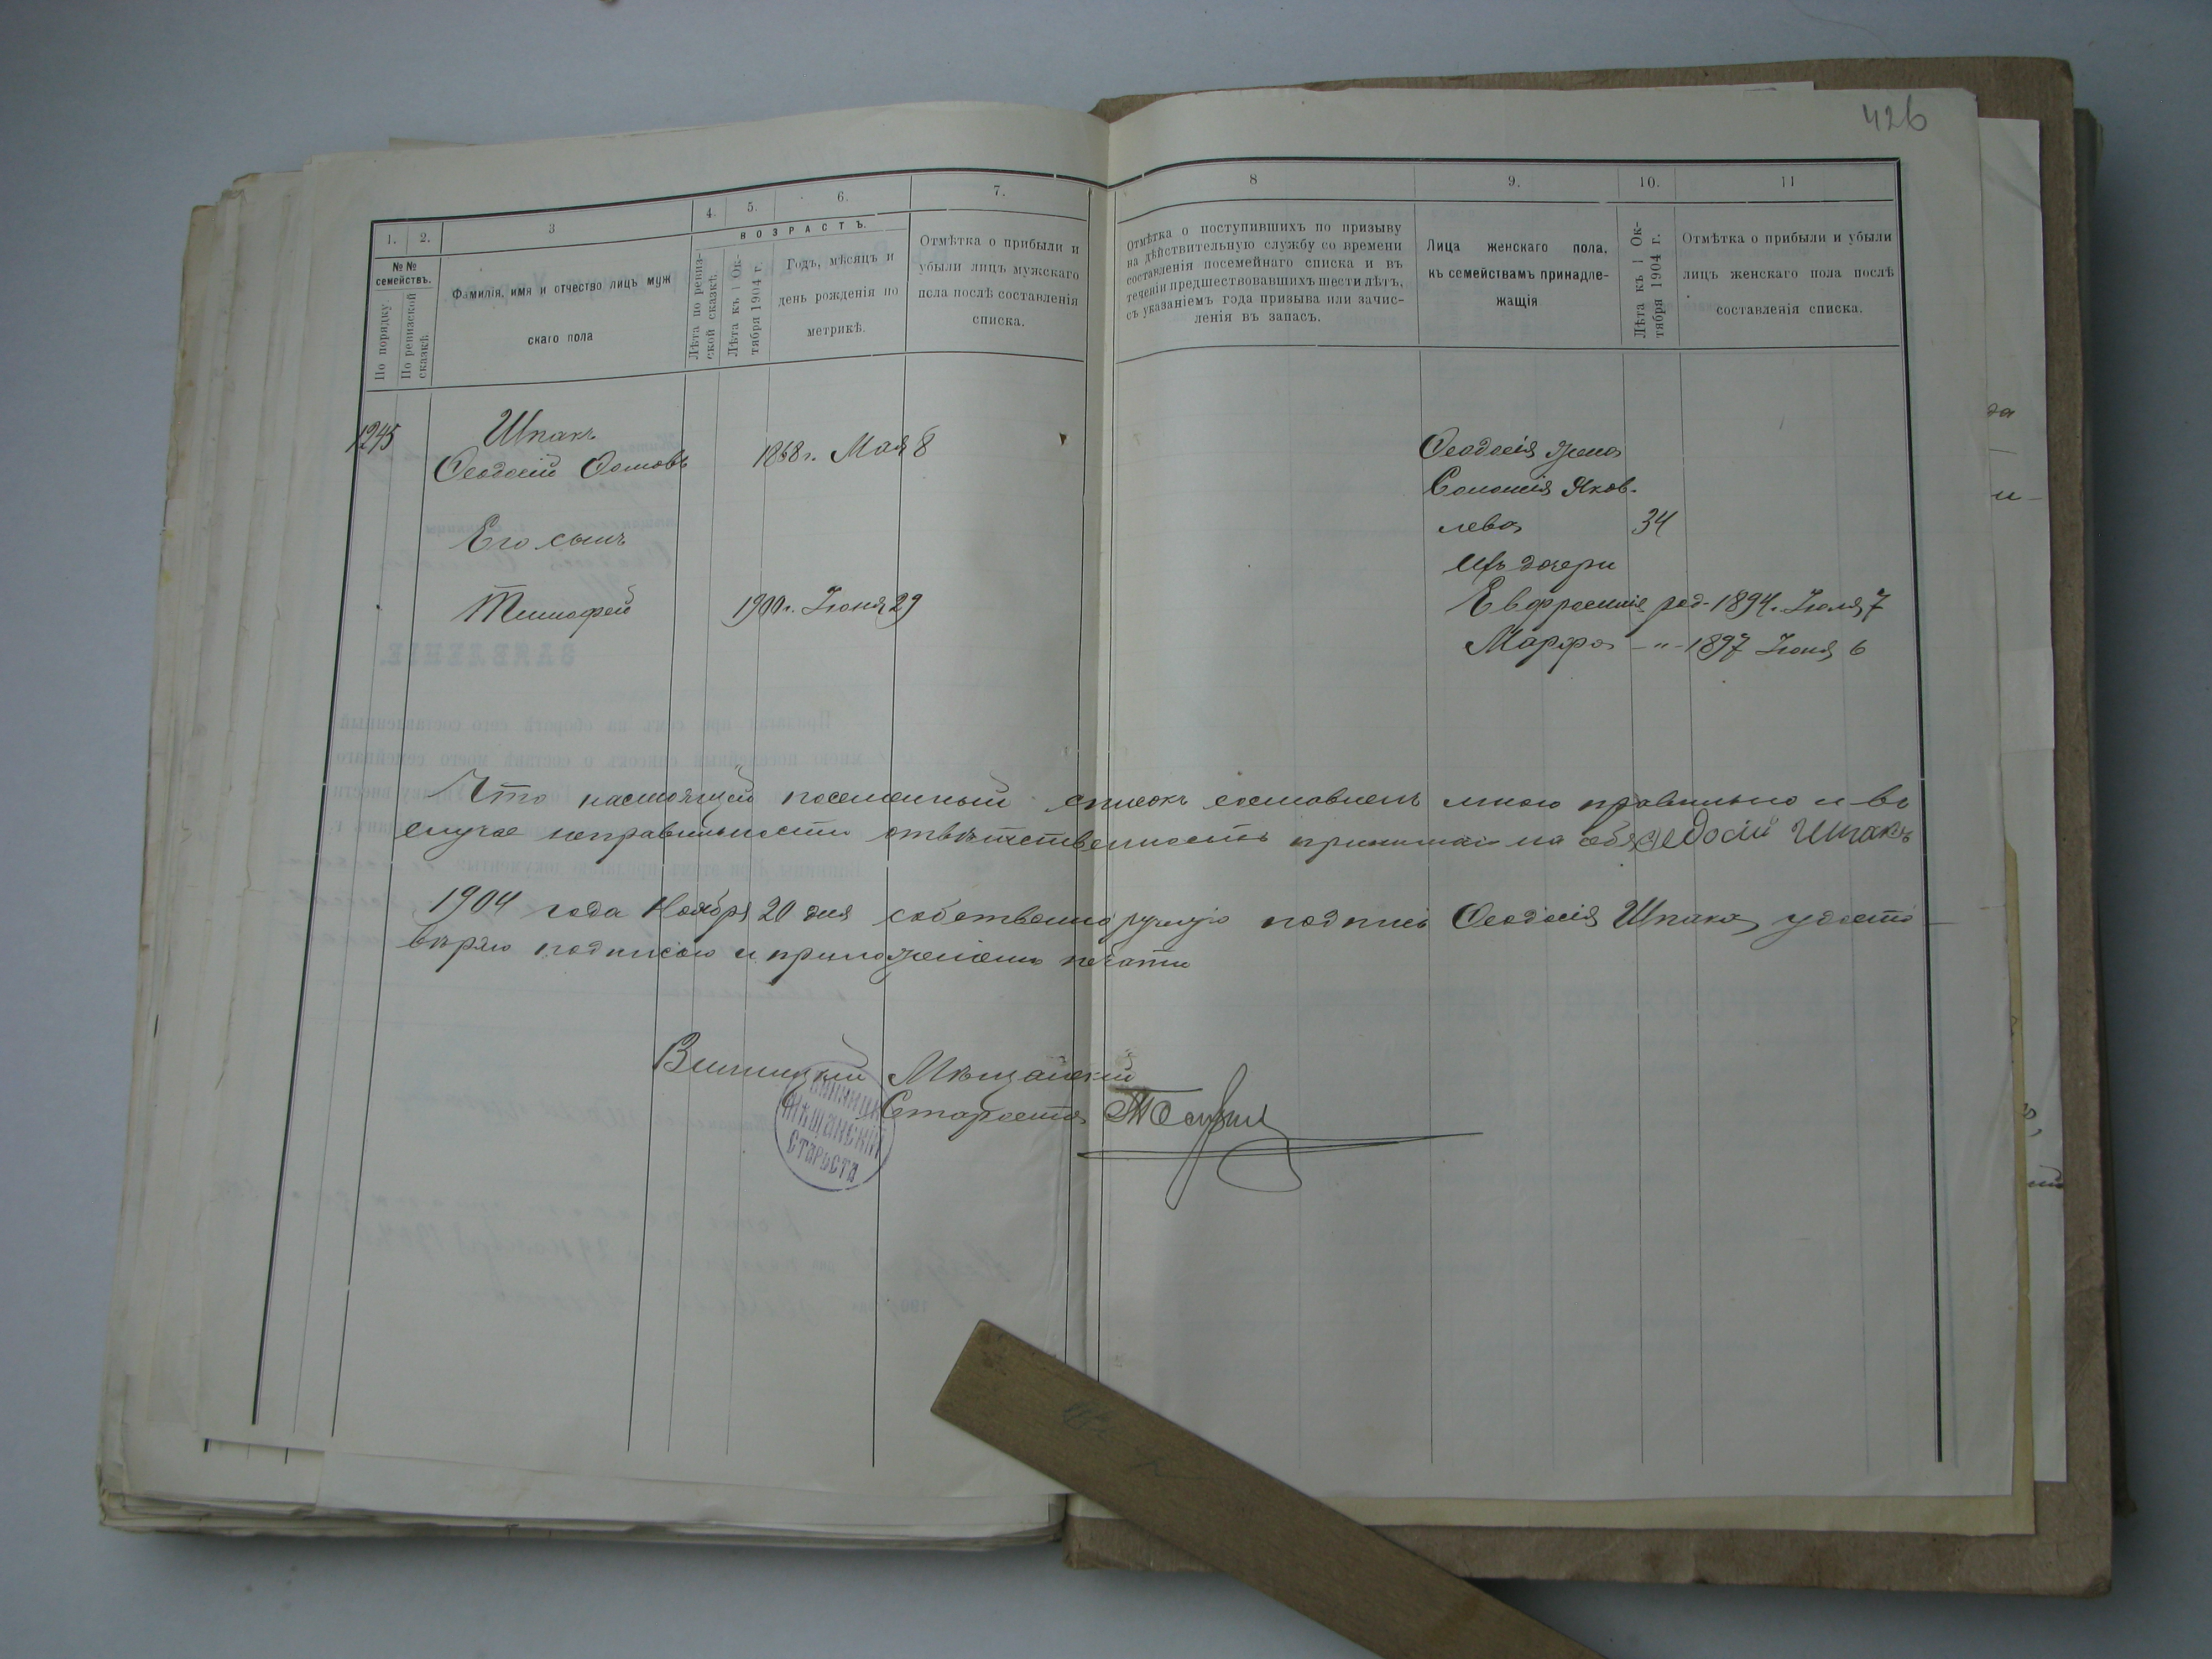 426
1. 2. 3 4. 5. 6. 7. 8 9. 10. 11
№ № семействъ.
По порядку
По ревизской сказкѣ
Фамилія, имя и отчество лицъ муж
скаго пола
ВОЗРАСТЪ.
Лѣта по ревиз-
ской сказкѣ
Лѣта къ 1 Ок-
тября 1904 г.
Годъ, мѣсяцъ и
день рожденія по
метрикѣ.
Отмѣтка о прибыли и
убыли лицъ мужскаго
пола послѣ составленія
списка.
Отмѣтка о поступившихъ по призыву
на дѣйствительную службу со времени
составленія посемейнаго списка и въ
теченіи предшествовавшихъ шести лѣтъ,
съ указаніемъ года призыва или зачис-
ленія въ запасъ.
Лица женскаго пола,
къ семействамъ принадле-
жащія
Лѣта къ 1 Ок-
тября 1904 г.
Отмѣтка о прибыли и убыли
лицъ женскаго пола послѣ
составленія списка.
1245
Шпакъ
Ѳеодосій 1868 г. Мая 8
Его сынъ
Тимофей 1900 г. Іюня 29
Ѳеодосія жена
Соломія Яков-
лева 34
Ихъ дочери
Евфросинія род. 1894 г. Іюля 7
Марфа -"- 1897 Іюня 6
Что настоящій посемейный списокъ составленъ мною правильно и въ
случае неправильности отвѣтственность принимаю на себя Ѳедосій Шпакъ
1904 года Ноября 20 дня собственноручную подпись Ѳеодосія Шпака удосто
вѣряю подписью и приложеніемъ печати
Винницкій Мѣщанскій
Староста
ВИННИЦК
МѢЩАНСКІЙ
СТАРОСТА
ЗАЯВЛЕНІЕ.